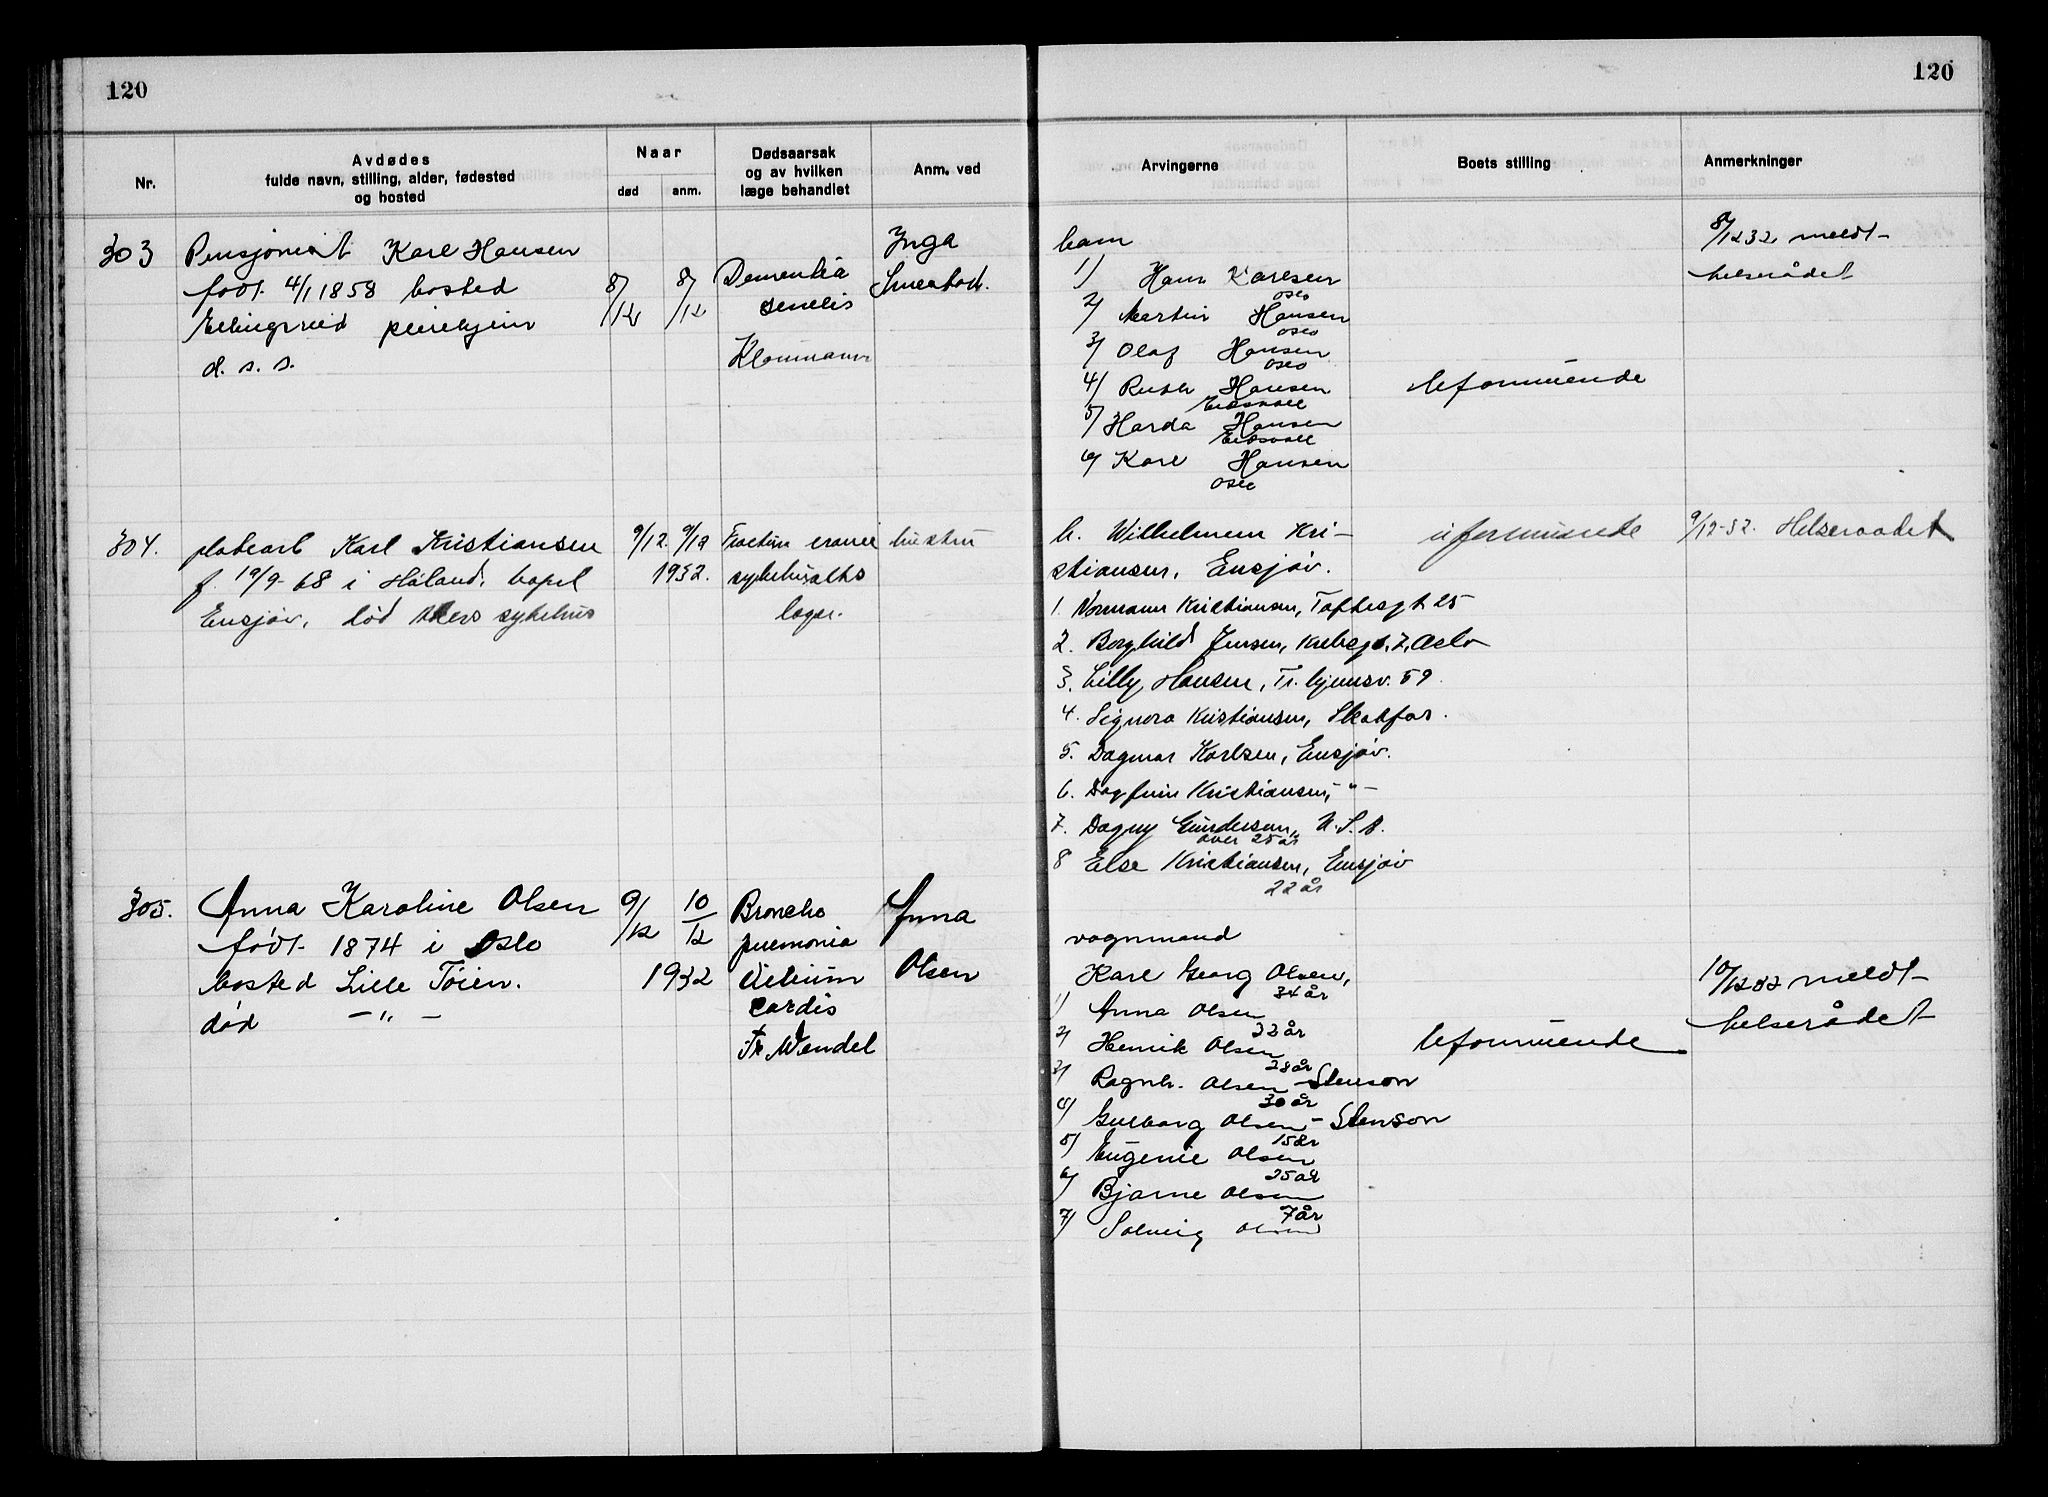 120
120
Nr.
Avdødes
fulde navn, stilling, alder, fødested
og bosted
Naar
død
anm.
Dødsaarsak
og av hvilken
læge behandlet
Anm. ved
Arvingerne
Boets stilling
Anmerkninger
303
Pensjonist Karl Hansen
født 4/1 1858 bosted
Ellingsrud pleiehjem
d. s. s.
8/12
8/12
Dementia
senilis
Inga
barn
1) Hans Karlsen
Oslo
2) Martin Hansen
Oslo
3) Olaf Hansen
Oslo
4) Ruth Hansen
Eidsvoll
5) Harda Hansen
Eidsvoll
6) Karl Hansen
Oslo
Uformuende
8/12 32 meldt
helserådet
304.
Karl Kristiansen
f. 19/9-68 i Høland, bopel
Ensjøv, død Akers sykehus
9/12. 9/12
1932.
Fractura cranii
sykehusets
læger.
hustru
h. Wilhelmine Kri-
stiansen, Ensjøv.
1. Normann Kristiansen, Toftesgt 25
2. Borghild Jensen, Krebsgt. 7, Oslo
3. Lilly Hansen, Tr.hjemsv. 59
4. Signora Kristiansen, Skotfos.
5. Dagmar Karlsen, Ensjøv.
6. Dagfinn Kristiansen, -"-
7. Dagny Gundersen, U.S.A.
over 25 år
8 Else Kristiansen, Ensjøv
22 år
uformuende
9/12-32. Helseraadet
305.
Anna Karoline Olsen
født 1874 i Oslo
bosted Lille Tøien.
død -"-
9/12
10/12
1932
Broncho
pnemonia
Vitium
cordis
Fr Wendel
Anna
Olsen
vognmand
Karl Georg Olsen,
34 år
1) Anna Olsen
32 år
2) Henrik Olsen
28 år
3) Ragnh. Olsen-Stenson
30 år
4) Gulborg Olsen-Stenson
15 år
5) Eugenie Olsen
25 år
6) Bjarne Olsen
7 år
7) Solveig Olsen
Uformuende
10/12 32 meldt
helserådet